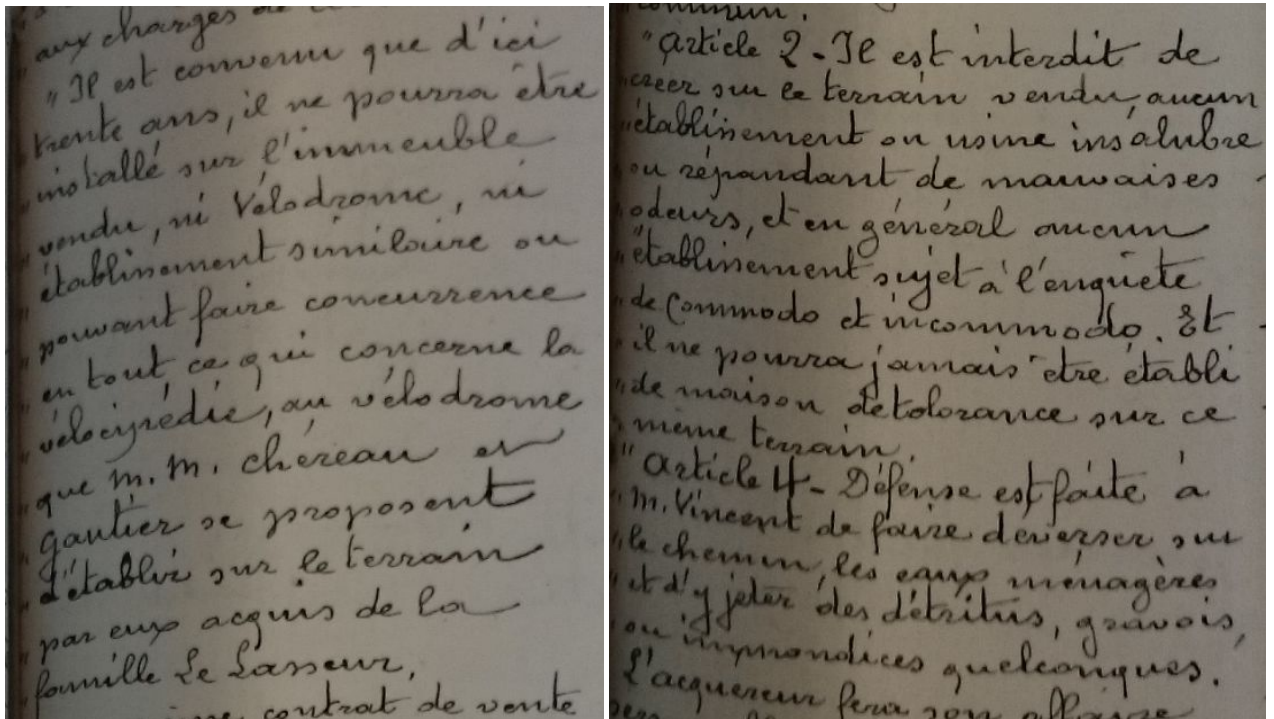 aux charges de
" Il est convenu que d'ici
" trente ans, il ne pourra être
" installé sur l'immeuble
" vendu, ni Vélodrome, ni
" établissement similaire ou
" pouvant faire concurrence
" en tout ce qui concerne la
" vélocipédie, au vélodrome
" que M. M. Chéreau et
" Gautier se proposent
" d'établir sur le terrain
" par eux acquis de la
" famille Le Lasseur,
contrat de vente
commun.
" Article 2 - Il est interdit de
" creer sur le terrain vendu, aucun
" établissement ou usine insalubre
" ou répandant de mauvaises
" odeurs, et en général aucun
" établissement sujet à l'enquête
" de Commodo et incommodo. Et
" il ne pourra jamais être établi
" de maison de tolorance sur ce
" même terrain.
" Article 4 - Défense est faite à
" M. Vincent de faire déverser sur
" le chemin, les eaux ménagères
" et d'y jeter des détritus, gravois,
" ou immondices quelconques.
" L'acquereur fera son affaire